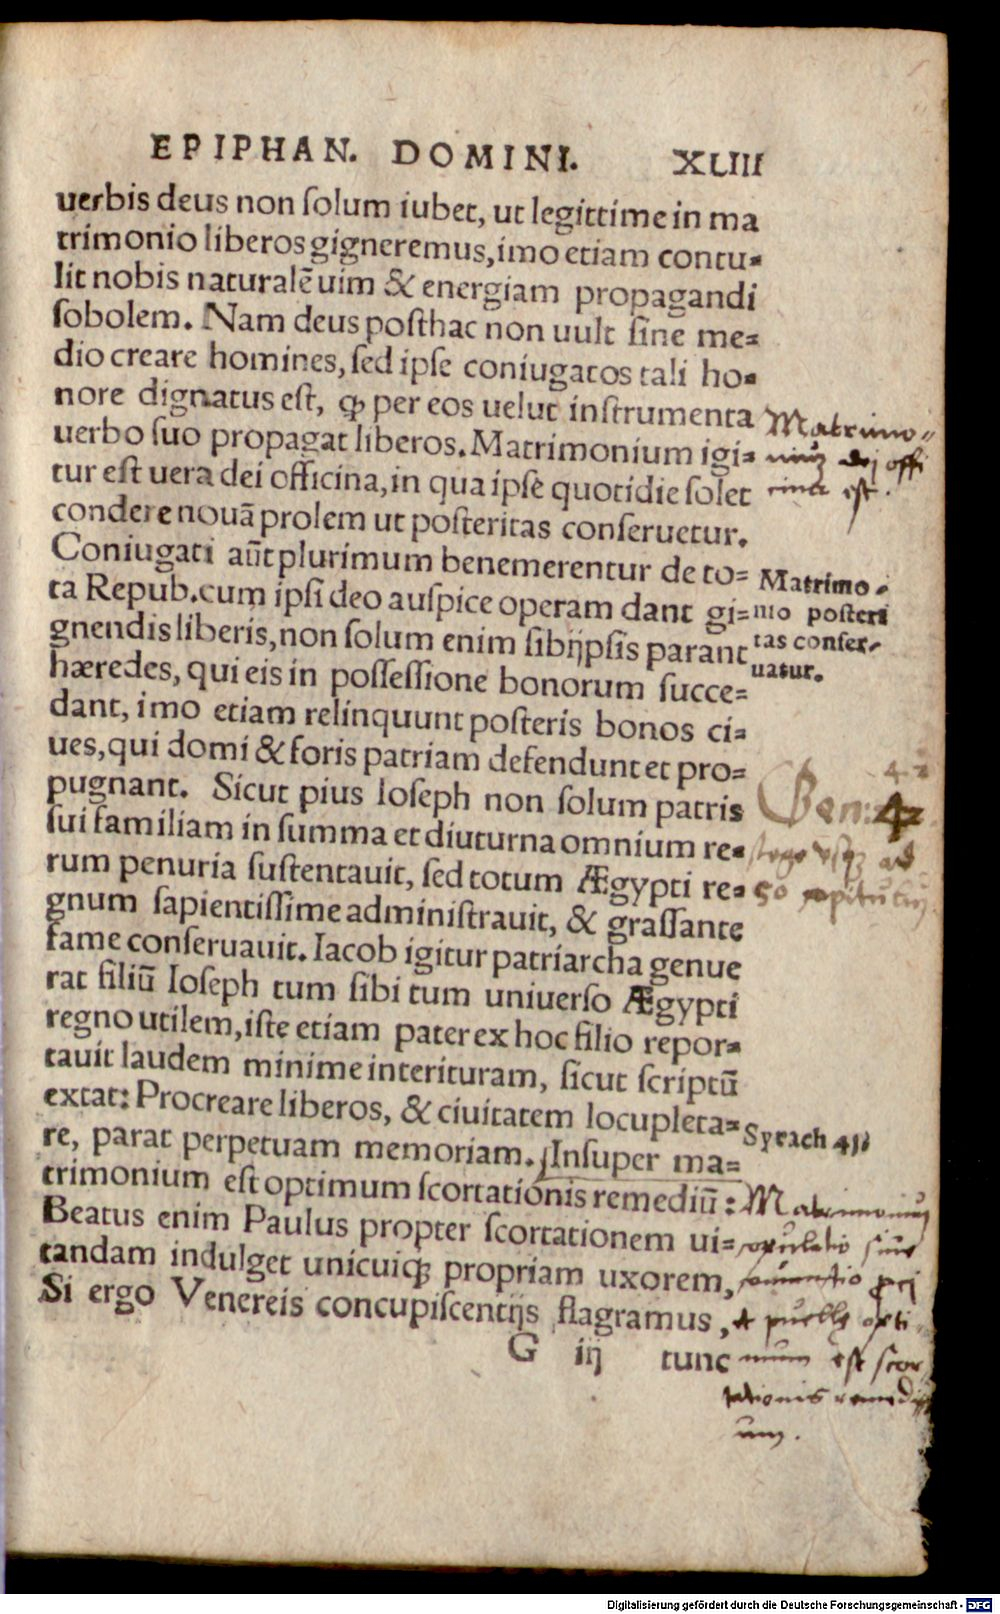 EPIPHAN. DOMINI. XLIII
uerbis deus non ſolum iubet, ut legittime in ma
trimonio liberos gigneremus, imo etiam contu-
lit nobis naturalē uim & energiam propagandi
ſobolem. Nam deus poſthac non uult ſine me-
dio creare homines, ſed ipſe coniugatos tali ho-
nore dignatus eſt, ꝙ per eos uelut inſtrumenta
uerbo ſuo propagat liberos. Matrimonium igi-
tur eſt uera dei officina, in qua ipſe quotidie ſolet
condere nouã prolem ut poſteritas conſeruetur.
Coniugati aũt plurimum benemerentur de to-
ta Repub. cum ipſi deo auſpice operam dant gi-
gnendis liberis, non ſolum enim ſibijpſis parant
hæredes, qui eis in poſſeſſione bonorum ſucce-
dant, imo etiam relinquunt poſteris bonos ci-
ues, qui domi & foris patriam defendunt et pro-
pugnant. Sicut pius Ioſeph non ſolum patris
ſui familiam in ſumma et diuturna omnium re-
rum penuria ſuſtentauit, ſed totum Ægypti re-
gnum ſapientiſſime adminiſtrauit, & graſſante
fame conſeruauit. Iacob igitur patriarcha genue
rat filiũ Ioſeph tum ſibi tum uniuerſo Ægypti
regno utilem, iſte etiam pater ex hoc filio repor-
tauit laudem minime interituram, ſicut ſcriptũ
extat: Procreare liberos, & ciuitatem locupleta-
re, parat perpetuam memoriam. Inſuper ma-
trimonium eſt optimum ſcortationis remediũ:
Beatus enim Paulus propter ſcortationem ui-
tandam indulget unicuiqꝫ propriam uxorem,
Si ergo Venereis concupiſcentijs flagramus,
G iij tunc
Matrimo-
niuꝫ dej offi
cina eſt.
Matrimo-
nio poſteri
tas conſer-
uatur.
42
Gen: 42
uſqꝫ ad
50 capitulũ
Syrach 41
Matrimoniuꝫ
copulatio ſiue
conuentio
& puellę opti-
mum eſt ſcor-
tationis remedi
um.
Digitalisierung gefördert durch die Deutsche Forschungsgemeinschaft - DFG